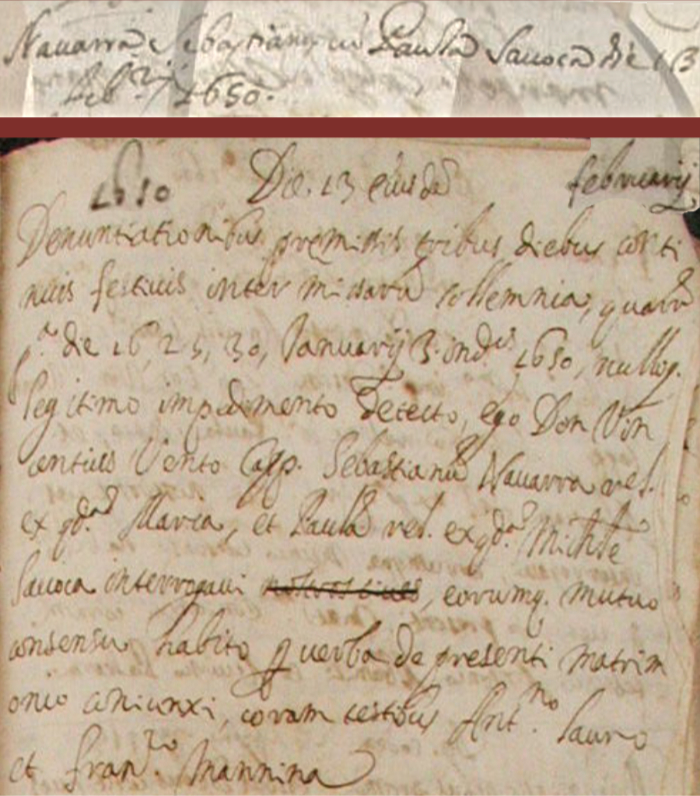 Navarra Sebastianus cu Paula Savoca die 13
feb.rij 1650.
1650 Die 13 eiusdē februarij
Denuntiationibus premissis tribus diebus conti
nuis festivis inter missarū sollemnia, quarū
p.a die 16, 25, 30, Januarij 3. ind.is 1650, nulloq.
legitimo impedimento detecto, ego Don Vin
centius Vento Capp. Sebastianū Navarra rel.
ex qd.ā Maria, et Paulā rel. ex qd.ā Michēle
Savoca interrogavi, eorumq. mutuo
consensu habito p verba de presenti matrim
onio coniunxi, coram testibus Ant.no Lauro
et Fran.co Mannina